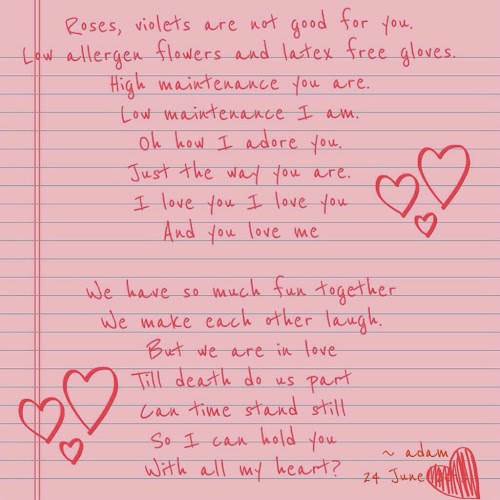 Roses, violets are not good for you.
Low allergen flowers and latex free gloves.
High maintenance you are.
Low maintenance I am.
Oh how I adore you.
Just the way you are.
I love you I love you
And you love me
We have so much fun together
We make each other laugh.
But we are in love
Till death do us part
Can time stand still
So I can hold you
With all my heart?
~ adam
24 June